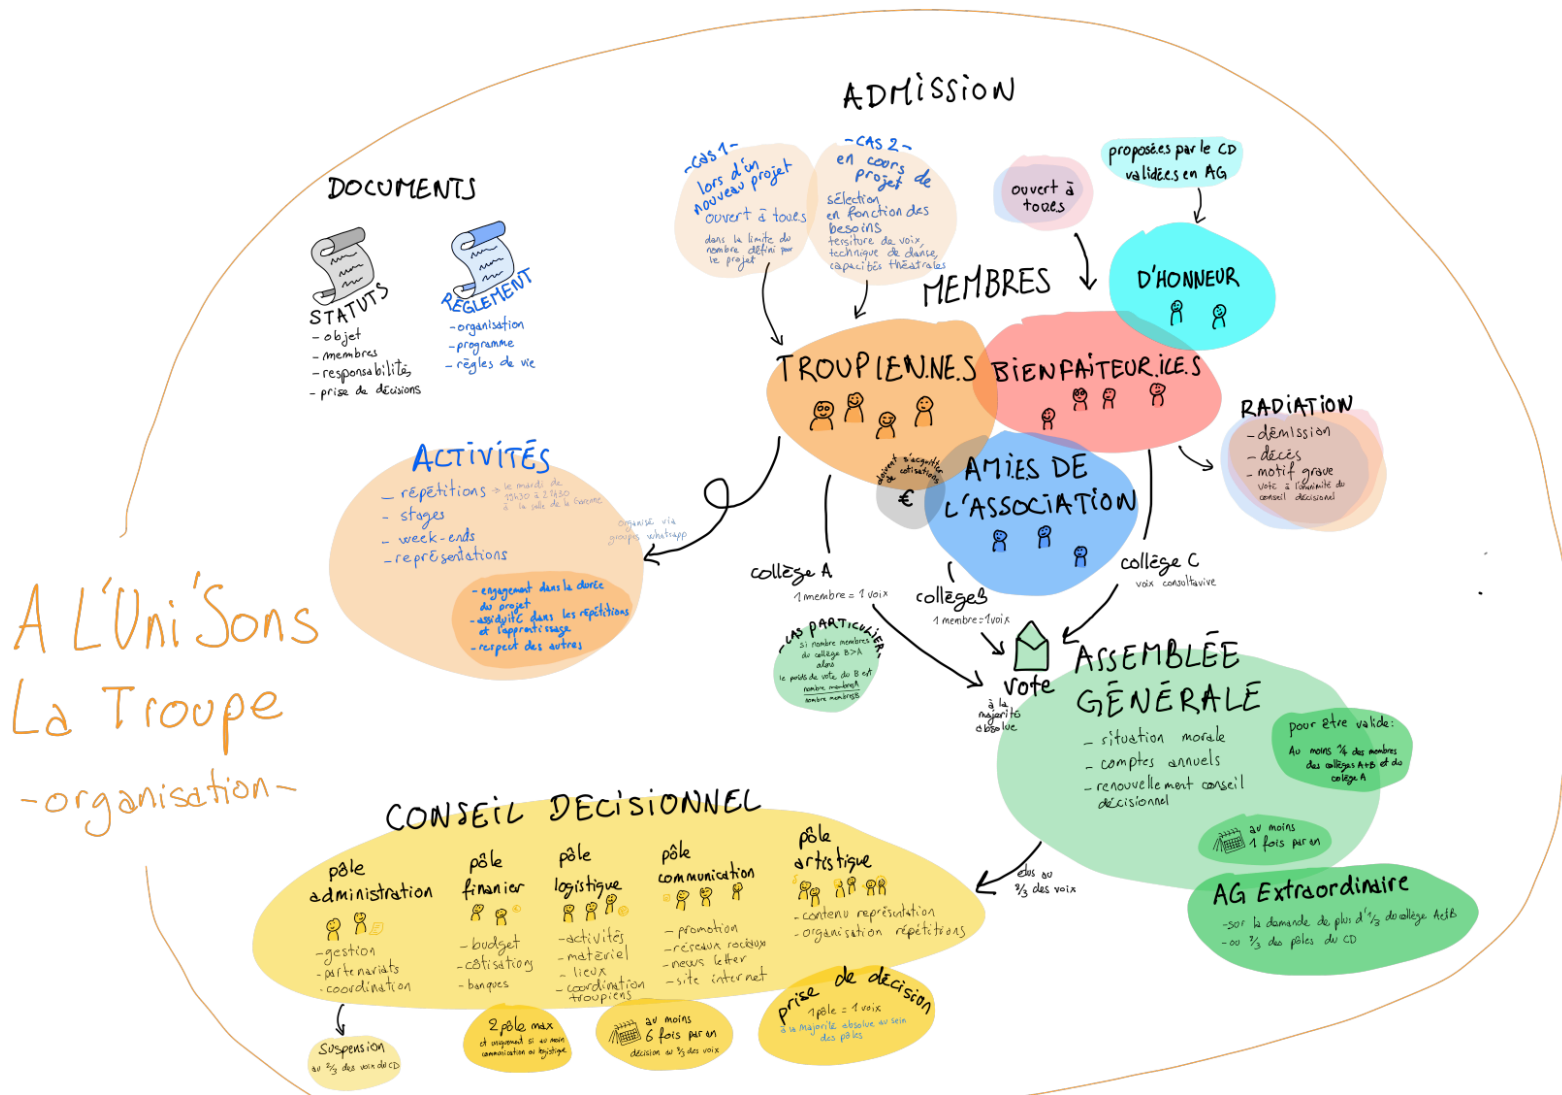 A L'Uni'Sons
La Troupe
-organisation-
DOCUMENTS
STATUTS
- objet
- membres
- responsabilités
- prise de décisions
RÈGLEMENT
- organisation
- programme
- règles de vie
ADMISSION
- Cas 1 -
lors d'un
nouveau projet
ouvert à toues
dans la limite du
nombre défini par
le projet
- CAS 2 -
en cours de
projet
sélection
en fonction des
besoins
tessiture de voix,
technique de danse,
capacités théatrales
ouvert à
toues
proposé.e.s par le CD
validé.e.s en AG
MEMBRES
TROUPIEN.NE.S
BIENFAITEUR.ICE.S
D'HONNEUR
AMI.ES DE
L'ASSOCIATION
doivent s'acquitter
cotisations
€
RADIATION
- démission
- décès
- motif grave
vote à l'unanimité du
conseil décisionel
ACTIVITÉS
- répétitions → le mardi de
19h30 à 21h30
à la salle de la Garenne
- stages
- week-ends
- représentations
organisé via
groupes whatsapp
- engagement dans la durée
du projet
- assiduité dans les répétitions
et l'apprentissage
- respect des autres
collège A
1 membre = 1 voix
collège B
1 membre = 1 voix
collège C
voix consultavive
- CAS PARTICULIER -
si nombre membres
du collège B>A
alors
le poids de vote du B est
nombre membres A
nombre membres B
vote
à la
majorité
absolue
ASSEMBLÉE
GÉNÉRALE
- situation morale
- comptes annuels
- renouvellement conseil
décisionnel
pour être valide:
Au moins 1/4 des membres
des collèges A+B et du
collège A
au moins
1 fois par an
AG Extraordinaire
- sur la demande de plus d'1/3 du collège A et B
- ou 2/3 des pôles du CD
élus au
2/3 des voix
CONSEIL DECISIONNEL
pôle
administration
- gestion
- partenariats
- coordination
pôle
finanier
- budget
- côtisations
- banques
pôle
logistique
- activités
- matériel
- lieux
- coordination
troupiens
pôle
communication
- promotion
- réseaux sociaux
- news letter
- site internet
pôle
artistique
- contenu représentation
- organisation répétitions
Suspension
au 2/3 des voix du CD
2 pôle max
et uniquement si au moin
communication ou logistique
au moins
6 fois par an
décision au 2/3 des voix
prise de décision
1 pôle = 1 voix
à la majorité absolue au sein
des pôles